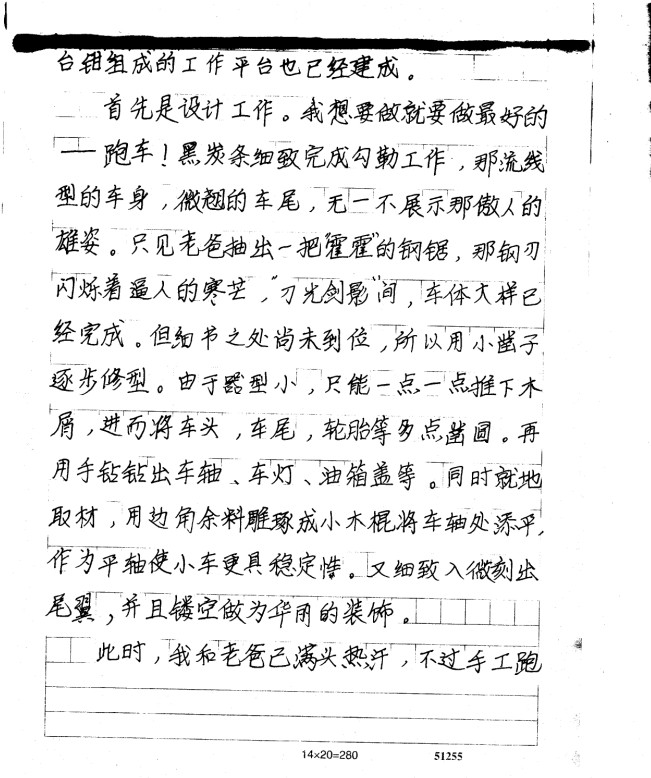 台钳组成的工作平台也已经建成。
首先是设计工作。我想要做就要做最好的
——跑车！黑炭条细致完成勾勒工作，那流线
型的车身，微翘的车尾，无一不展示那傲人的
雄姿。只见老爸抽出一把“霍霍”的钢锯，那钢刃
闪烁着逼人的寒芒，“刀光剑影”间，车体大样已
经完成。但细节之处尚未到位，所以用小凿子
逐步修型。由于器型小，只能一点一点推下木
屑，进而将车头，车尾，轮胎等多点凿圆。再
用手钻钻出车轴、车灯、油箱盖等。同时就地
取材，用边角余料雕琢成小木棍将车轴处添平，
作为平轴使小车更具稳定性。又细致入微刻出
尾翼，并且镂空做为华丽的装饰。
此时，我和老爸已满头热汗，不过手工跑
14×20=280 51255